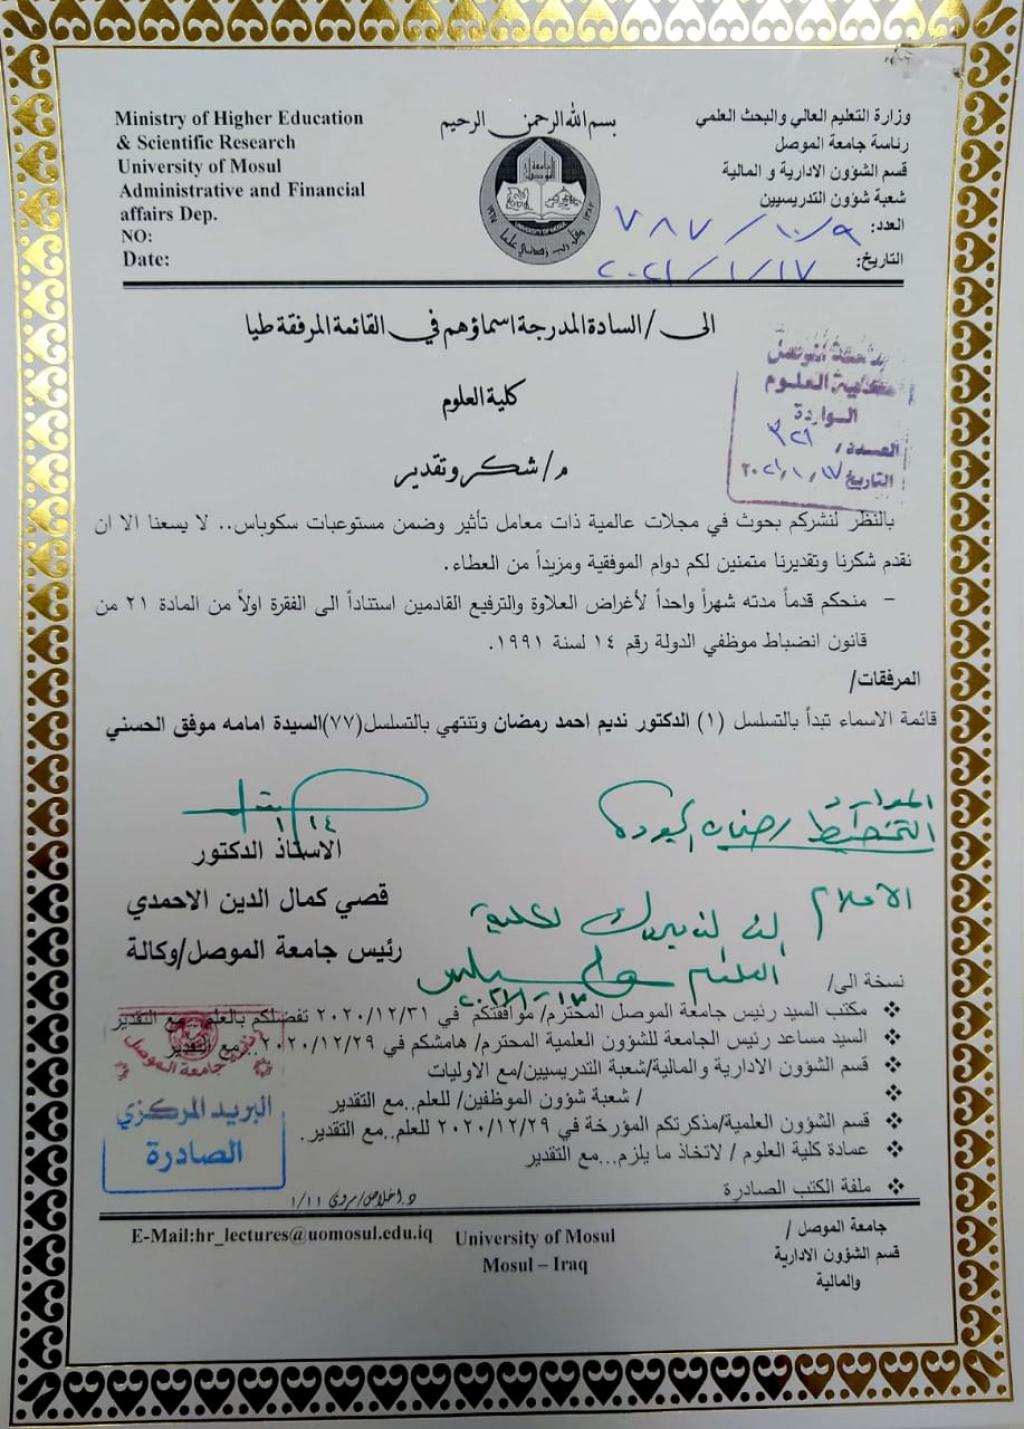 Ministry of Higher Education
& Scientific Research
University of Mosul
Administrative and Financial
affairs Dep.
NO:
Date:
بسم الله الرحمن الرحيم
وزارة التعليم العالي والبحث العلمي
رئاسة جامعة الموصل
قسم الشؤون الادارية و المالية
شعبة شؤون التدريسيين
العدد: ٧٨٧/١٠/٩
التاريخ: ٢٠٢١/١/١٧
الى / السادة المدرجة اسماؤهم في القائمة المرفقة طيا
كلية العلوم
م/ شكر وتقدير
كلية العلوم
الواردة
العدد، ٣٢١
التاريخ ٢٠٢١/١/١٧
بالنظر لنشركم بحوث في مجلات عالمية ذات معامل تأثير وضمن مستوعبات سكوباس.. لا يسعنا الا ان
نقدم شكرنا وتقديرنا متمنين لكم دوام الموفقية ومزيداً من العطاء.
– منحكم قدماً مدته شهراً واحداً لأغراض العلاوة والترفيع القادمين استناداً الى الفقرة اولاً من المادة ٢١ من
قانون انضباط موظفي الدولة رقم ١٤ لسنة ١٩٩١.
المرفقات/
قائمة الاسماء تبدأ بالتسلسل (١) الدكتور نديم احمد رمضان وتنتهي بالتسلسل(٧٧)السيدة امامه موفق الحسني
١/١٤
الاستاذ الدكتور
قصي كمال الدين الاحمدي
رئيس جامعة الموصل/وكالة
الموارد
التخطيط
الاعلام
نسخة الى/
❖ مكتب السيد رئيس جامعة الموصل المحترم/ موافقتكم في ٢٠٢٠/١٢/٣١ تفضلكم بالعلم..مع التقدير
❖ السيد مساعد رئيس الجامعة للشؤون العلمية المحترم/ هامشكم في ٢٠٢٠/١٢/٢٩..مع التقدير
❖ قسم الشؤون الادارية والمالية/شعبة التدريسيين/مع الاوليات
❖ / شعبة شؤون الموظفين/ للعلم..مع التقدير
❖ قسم الشؤون العلمية/مذكرتكم المؤرخة في ٢٠٢٠/١٢/٢٩ للعلم..مع التقدير.
❖ عمادة كلية العلوم / لاتخاذ ما يلزم...مع التقدير
❖ ملفة الكتب الصادرة
جامعة الموصل
البريد المركزي
الصادرة
د.اخلاص/مروى ١/١١
E-Mail:hr_lectures@uomosul.edu.iq
University of Mosul
Mosul – Iraq
جامعة الموصل /
قسم الشؤون الادارية
والمالية